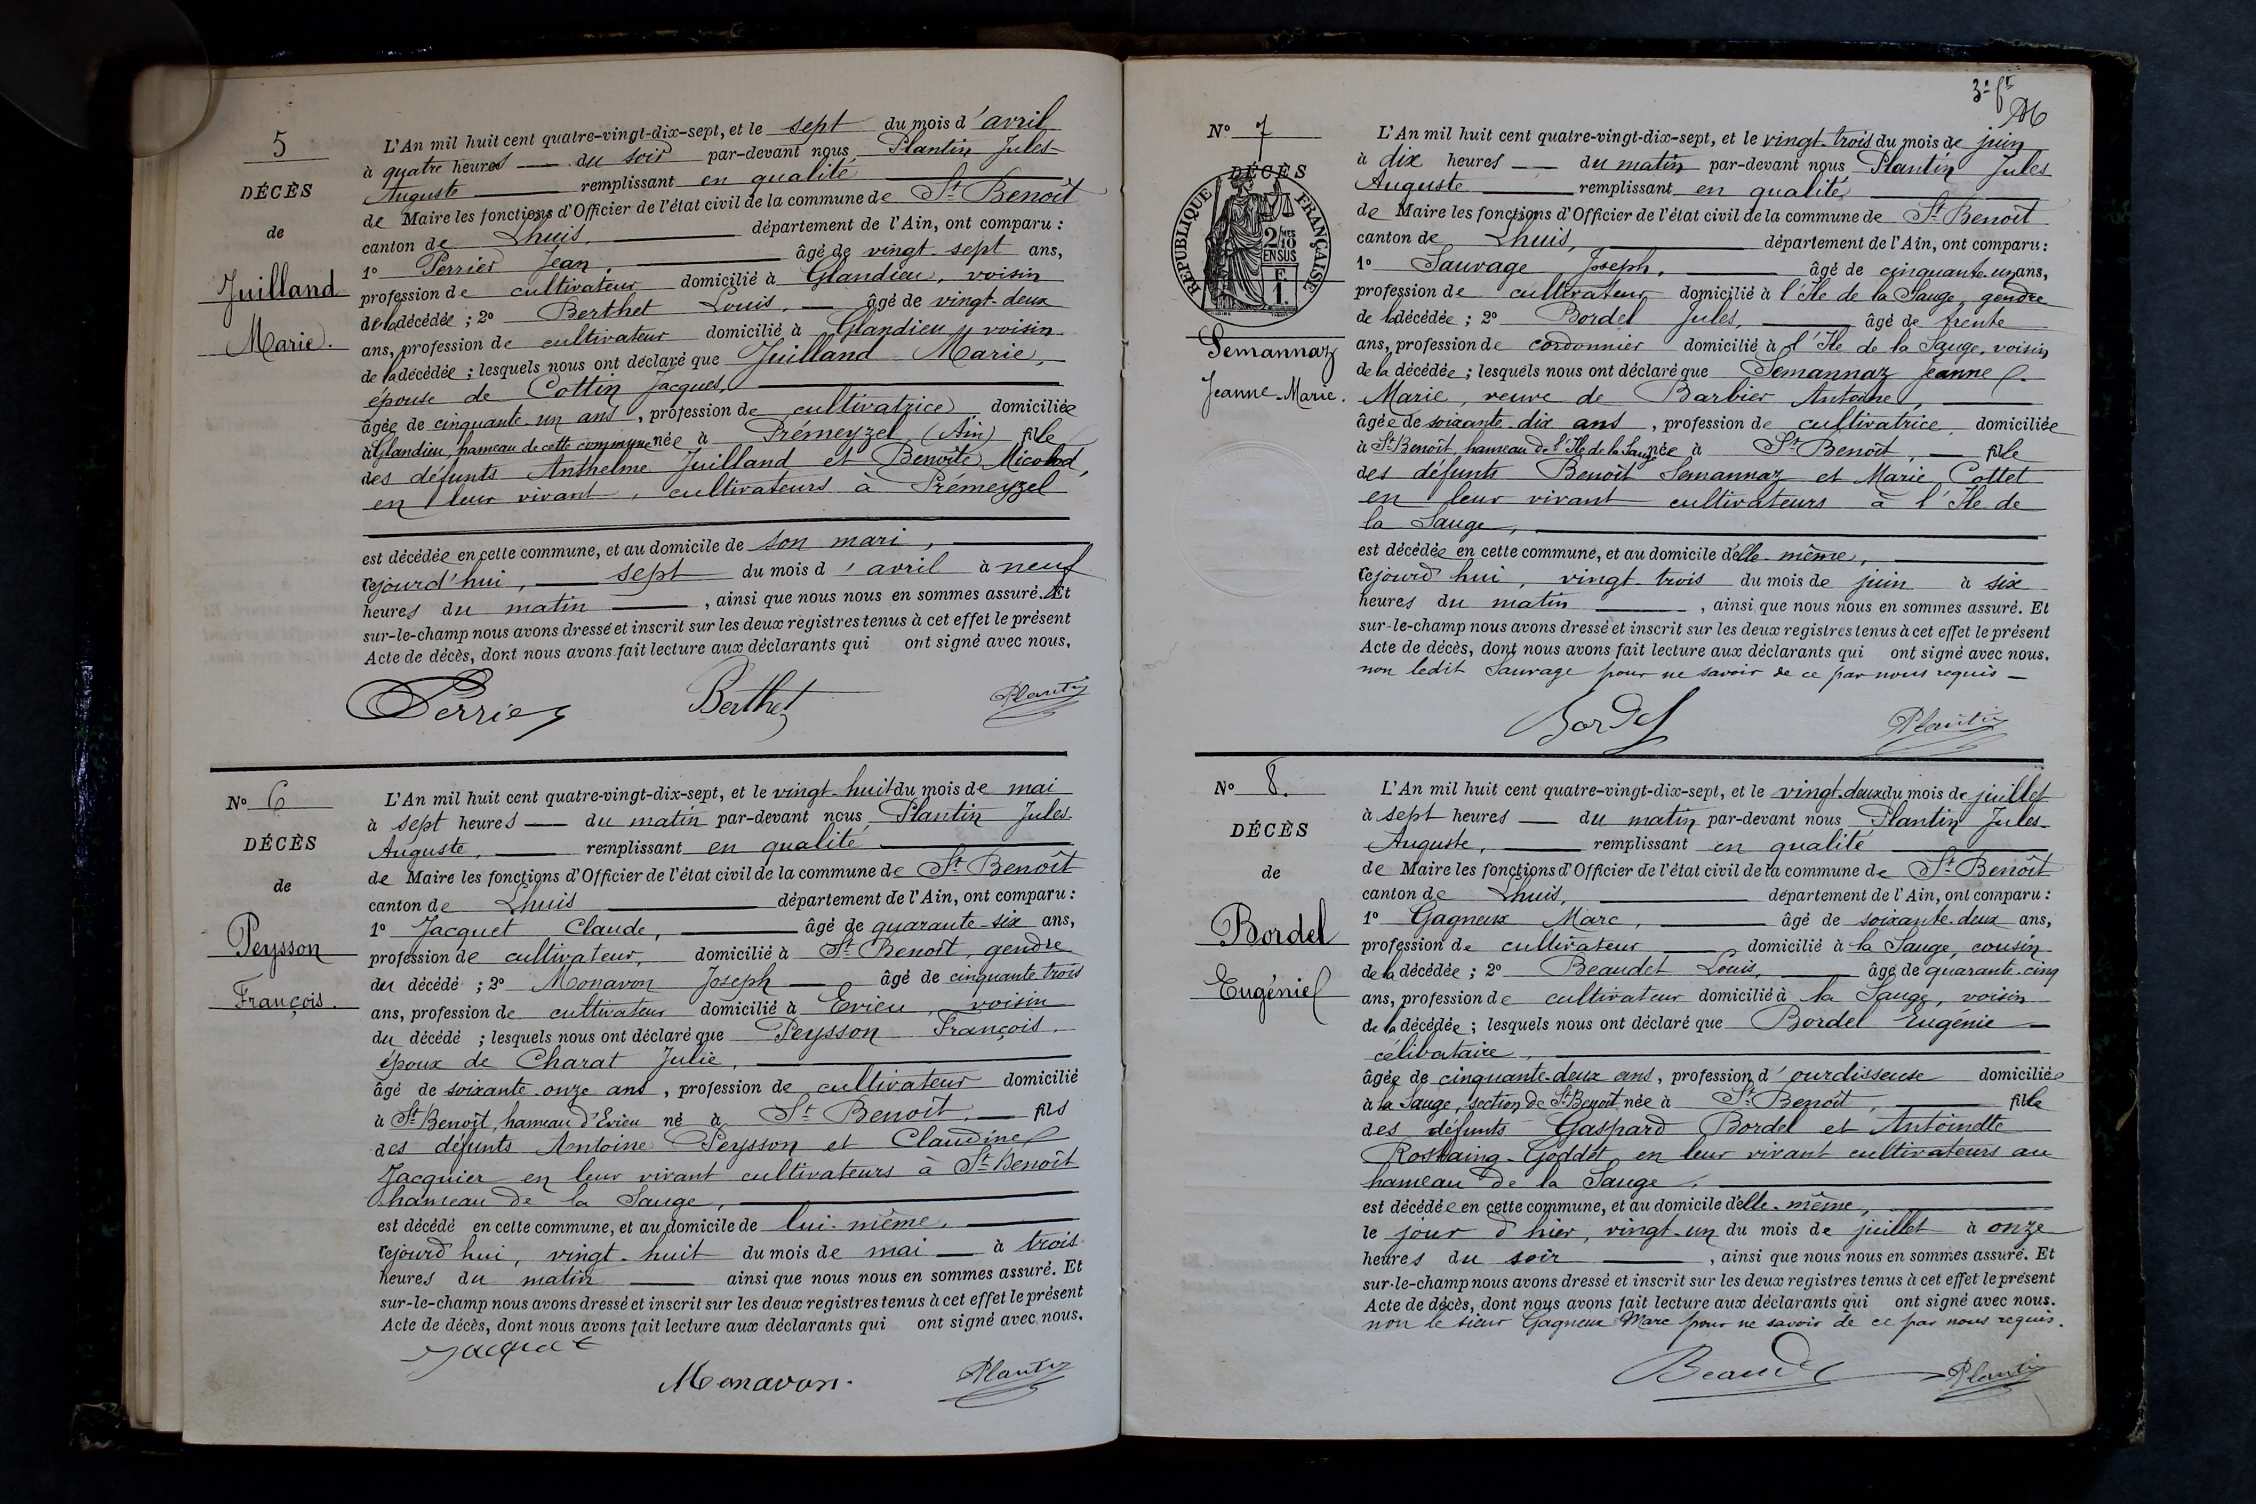 5
DÉCÈS
de
Juilland
Marie.
L'An mil huit cent quatre-vingt-dix-sept, et le sept du mois d'avril
à quatre heures du soir par-devant nous Plantin Jules
Auguste remplissant en qualité
de Maire les fonctions d'Officier de l'état civil de la commune de St Benoît
canton de Lhuis, département de l'Ain, ont comparu :
1º Perrier Jean, âgé de vingt-sept ans,
profession de cultivateur domicilié à Glandieu, voisin
de la décédée ; 2º Berthet Louis, âgé de vingt-deux
ans, profession de cultivateur domicilié à Glandieu, voisin
de la décédée ; lesquels nous ont déclaré que Juilland Marie,
épouse de Cottin Jacques,
âgée de cinquante-un ans, profession de cultivatrice domiciliée
à Glandieu, hameau de cette commune née à Prémeyzel (Ain) fille
des défunts Anthelme Juilland et Benoîte Micolod,
en leur vivant, cultivateurs à Prémeyzel
est décédée en cette commune, et au domicile de son mari,
cejourd'hui, sept du mois d'avril à neuf
heures du matin, ainsi que nous nous en sommes assuré. Et
sur-le-champ nous avons dressé et inscrit sur les deux registres tenus à cet effet le présent
Acte de décès, dont nous avons fait lecture aux déclarants qui ont signé avec nous.
Perrier Berthet Plantin
Nº 6
DÉCÈS
de
Peysson
François.
L'An mil huit cent quatre-vingt-dix-sept, et le vingt-huit du mois de mai
à sept heures du matin par-devant nous Plantin Jules
Auguste, remplissant en qualité
de Maire les fonctions d'Officier de l'état civil de la commune de St Benoît
canton de Lhuis département de l'Ain, ont comparu :
1º Jacquet Claude, âgé de quarante-six ans,
profession de cultivateur, domicilié à St Benoît, gendre
du décédé ; 2º Monavon Joseph âgé de cinquante trois
ans, profession de cultivateur domicilié à Evieu, voisin
du décédé ; lesquels nous ont déclaré que Peysson François,
époux de Charat Julie,
âgé de soixante-onze ans, profession de cultivateur domicilié
à St Benoît, hameau d'Evieu né à St Benoît, fils
des défunts Antoine Peysson et Claudine
Jacquier en leur vivant cultivateurs à St Benoît
hameau de la Sauge,
est décédé en cette commune, et au domicile de lui-même,
cejourd'hui, vingt-huit du mois de mai à trois
heures du matin ainsi que nous nous en sommes assuré. Et
sur-le-champ nous avons dressé et inscrit sur les deux registres tenus à cet effet le présent
Acte de décès, dont nous avons fait lecture aux déclarants qui ont signé avec nous.
Jacquet
Monavon. Plantin
Nº 7
DÉCÈS
RÉPUBLIQUE FRANÇAISE
2/10 MES
EN SUS
F
1.
Semannaz
Jeanne-Marie.
L'An mil huit cent quatre-vingt-dix-sept, et le vingt-trois du mois de juin
à dix heures du matin par-devant nous Plantin Jules
Auguste remplissant en qualité
de Maire les fonctions d'Officier de l'état civil de la commune de St Benoît
canton de Lhuis, département de l'Ain, ont comparu :
1º Sauvage Joseph, âgé de cinquante-un ans,
profession de cultivateur domicilié à l'Ile de la Sauge, gendre
de la décédée ; 2º Bordel Jules, âgé de trente
ans, profession de cordonnier domicilié à l'Ile de la Sauge, voisin
de la décédée ; lesquels nous ont déclaré que Semannaz Jeanne
Marie, veuve de Barbier Antoine,
âgée de soixante-dix ans, profession de cultivatrice domiciliée
à St Benoît, hameau de l'Ile de la Sauge née à St Benoît, fille
des défunts Benoît Semannaz et Marie Cottet
en leur vivant cultivateurs à l'Ile de
la Sauge,
est décédée en cette commune, et au domicile d'elle-même,
cejourd'hui, vingt-trois du mois de juin à six
heures du matin, ainsi que nous nous en sommes assuré. Et
sur-le-champ nous avons dressé et inscrit sur les deux registres tenus à cet effet le présent
Acte de décès, dont nous avons fait lecture aux déclarants qui ont signé avec nous.
non ledit Sauvage pour ne savoir de ce par nous requis
Bordel Plantin
Nº 8.
DÉCÈS
de
Bordel
Eugénie
L'An mil huit cent quatre-vingt-dix-sept, et le vingt-deux du mois de juillet
à sept heures du matin par-devant nous Plantin Jules
Auguste, remplissant en qualité
de Maire les fonctions d'Officier de l'état civil de la commune de St Benoît
canton de Lhuis, département de l'Ain, ont comparu :
1º Gagneux Marc, âgé de soixante-deux ans,
profession de cultivateur domicilié à la Sauge, cousin
de la décédée ; 2º Beaudet Louis, âgé de quarante-cinq
ans, profession de cultivateur domicilié à la Sauge, voisin
de la décédée ; lesquels nous ont déclaré que Bordel Eugénie
célibataire,
âgée de cinquante-deux ans, profession d'ourdisseuse domiciliée
à la Sauge, section de St Benoît née à St Benoît, fille
des défunts Gaspard Bordel et Antoinette
Rostaing-Goddet, en leur vivant cultivateurs au
hameau de la Sauge,
est décédée en cette commune, et au domicile d'elle-même,
le jour d'hier, vingt-un du mois de juillet à onze
heures du soir, ainsi que nous nous en sommes assuré. Et
sur-le-champ nous avons dressé et inscrit sur les deux registres tenus à cet effet le présent
Acte de décès, dont nous avons fait lecture aux déclarants qui ont signé avec nous.
non le sieur Gagneux Marc pour ne savoir de ce par nous requis.
Beaudet Plantin